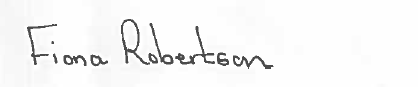 Fiona Robertson